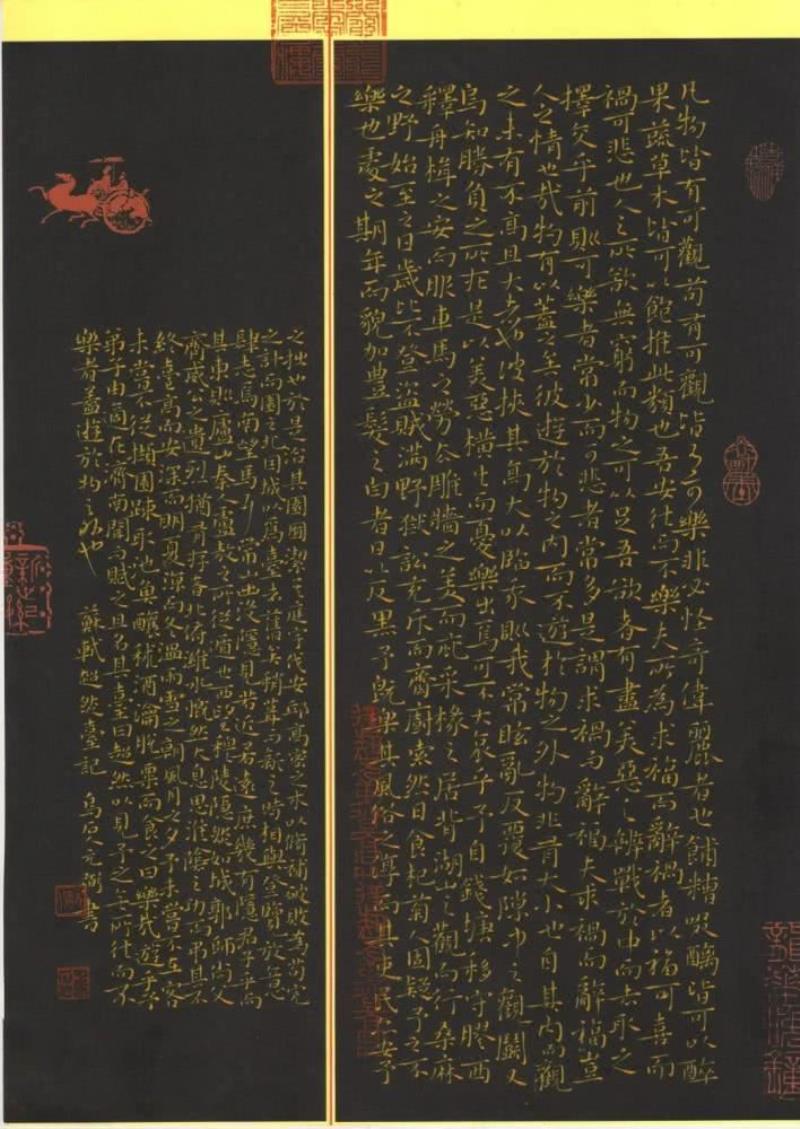 凡物皆有可觀苟有可觀皆有可樂非必怪奇偉麗者也餔糟啜醨皆可以醉
果蔬草木皆可以飽推此類也吾安往而不樂夫所為求福而辭禍者以福可喜而
禍可悲也人之所欲無窮而物之可以足吾欲者有盡美惡之辨戰於中而去取之
擇交乎前則可樂者常少而可悲者常多是謂求禍而辭福夫求禍而辭福豈
人之情也哉物有以蓋之矣彼遊於物之內而不遊於物之外物非有大小也自其內而觀
之未有不高且大者也彼挾其高大以臨我則我常眩亂反覆如隙中之觀鬭又
烏知勝負之所在是以美惡橫生而憂樂出焉可不大哀乎予自錢塘移守膠西
釋舟楫之安而服車馬之勞去雕牆之美而庇采椽之居背湖山之觀而行桑麻
之野始至之日歲比不登盜賊滿野獄訟充斥而齋廚索然日食杞菊人固疑予之不
樂也處之期年而貌加豐髮之白者日以反黑予既樂其風俗之淳而其吏民亦安予
之拙也於是治其園囿潔其庭宇伐安邱高密之木以修補破敗為苟完
之計而園之北因城以為臺者舊矣稍葺而新之時相與登覽放意
肆志焉南望馬耳常山出沒隱見若近若遠庶幾有隱君子乎而
其東則廬山秦人盧敖之所從遁也西望穆陵隱然如城郭師尚父
齊威公之遺烈猶有存者北俯濰水慨然大息思淮陰之功而弔其不
終臺高而安深而明夏涼而冬溫雨雪之朝風月之夕予未嘗不在客
未嘗不從擷園蔬取池魚釀秫酒瀹脫粟而食之曰樂哉遊乎予
弟子由適在濟南聞而賦之且名其臺曰超然以見予之無所往而不
樂者蓋遊於物之外也 蘇軾超然臺記 元書